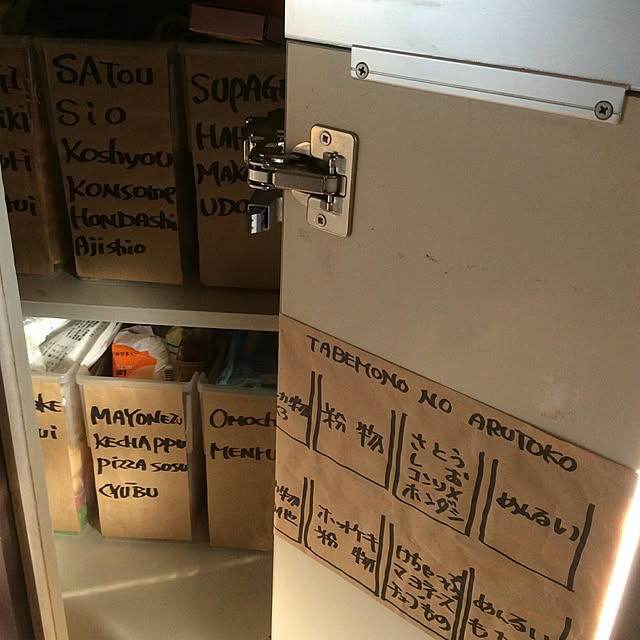 SATOU
SIO
KOSHYOU
KONSOME
HONDASHI
AJISHIO
SUPAG
HAR
MAK
UDO
MAYONEZU
KECHAPPU
PIZZA SOSU
CYŪBU
OMOCH
MENRU
TABEMONO NO ARUTOKO
粉物
さとう
しお
コンソメ
ホンダシ
めんるい
ホットケキ
粉物
けちゃっぷ
マヨネズ
チューブもの
めんるい